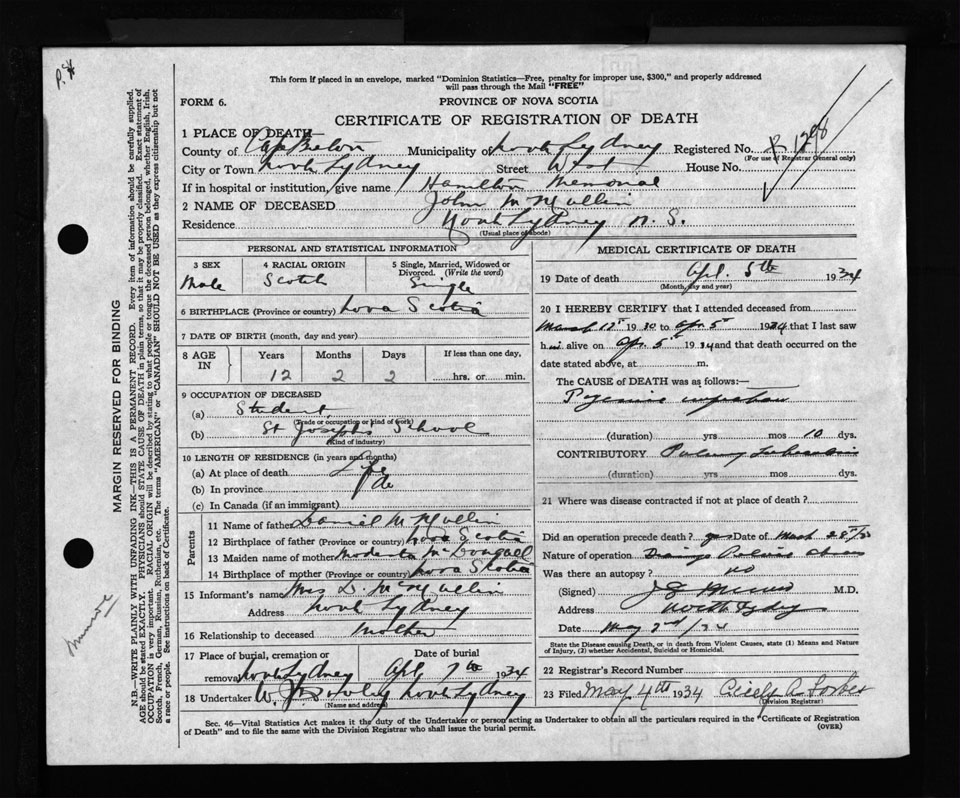 This form if placed in an envelope, marked "Dominion Statistics—Free, penalty for improper use, $300," and properly addressed
will pass through the Mail "FREE"
FORM 6.
PROVINCE OF NOVA SCOTIA
CERTIFICATE OF REGISTRATION OF DEATH
1 PLACE OF DEATH—
County of Cape Breton Municipality of North Sydney Registered No.
(For use of Registrar General only)
City or Town North Sydney Street House No.
If in hospital or institution, give name Hamilton Memorial
2 NAME OF DECEASED John McMullin
Residence North Sydney N. S.
(Usual place of abode)
PERSONAL AND STATISTICAL INFORMATION
3 SEX Male
4 RACIAL ORIGIN Scotch
5 Single, Married, Widowed or Divorced. (Write the word) Single
6 BIRTHPLACE (Province or country) Nova Scotia
7 DATE OF BIRTH (month, day and year)
8 AGE IN Years Months Days If less than one day,
12 2 2 hrs. or min.
9 OCCUPATION OF DECEASED
(a) Student
(Trade or occupation or kind of work)
(b) St Josephs School
(Kind of industry)
10 LENGTH OF RESIDENCE (in years and months)
(a) At place of death Life
(b) In province do
(c) In Canada (if an immigrant)
Parents
11 Name of father Daniel McMullin
12 Birthplace of father (Province or country) Nova Scotia
13 Maiden name of mother McDougall
14 Birthplace of mother (Province or country) Nova Scotia
15 Informant's name Mrs D. McMullin
Address North Sydney
16 Relationship to deceased Mother
17 Place of burial, cremation or removal Date of burial
North Sydney Apl 7th 1934
18 Undertaker W. J. Dooley North Sydney
(Name and address)
MEDICAL CERTIFICATE OF DEATH
19 Date of death Apl. 5th 1934
(Month, day and year)
20 I HEREBY CERTIFY that I attended deceased from
March 1930 to Apr 5 1934 that I last saw
him alive on Apr. 5th 1934 and that death occurred on the
date stated above, at m.
The CAUSE OF DEATH was as follows:—
Pyaemic
(duration) yrs mos 10 dys.
CONTRIBUTORY
(duration) yrs mos dys.
21 Where was disease contracted if not at place of death?
Did an operation precede death? yes Date of March 28th
Nature of operation
Was there an autopsy? no
(Signed) M.D.
Address North Sydney
Date May 2nd/34
State the Disease causing Death, or in death from Violent Causes, state (1) Means and Nature
of Injury, (2) whether Accidental, Suicidal or Homicidal.
22 Registrar's Record Number
23 Filed May 4th 1934 A. Forbes
(Division Registrar)
Sec. 46—Vital Statistics Act makes it the duty of the Undertaker or person acting as Undertaker to obtain all the particulars required in the "Certificate of Registration
of Death" and to file the same with the Division Registrar who shall issue the burial permit.
(OVER)
MARGIN RESERVED FOR BINDING
N.B.—WRITE PLAINLY WITH UNFADING INK—THIS IS A PERMANENT RECORD. Every item of information should be carefully supplied.
AGE should be stated EXACTLY. PHYSICIANS should STATE CAUSE OF DEATH in plain terms, so that it may be properly classified. Exact statement of
OCCUPATION is very important. RACIAL ORIGIN will be described by stating to what people or tongue the deceased person belonged, whether English, Irish,
Scotch, French, German, Russian, Ruthenian, etc. The terms "AMERICAN" or "CANADIAN" SHOULD NOT BE USED as they express citizenship but not
a race or people. See instructions on back of Certificate.